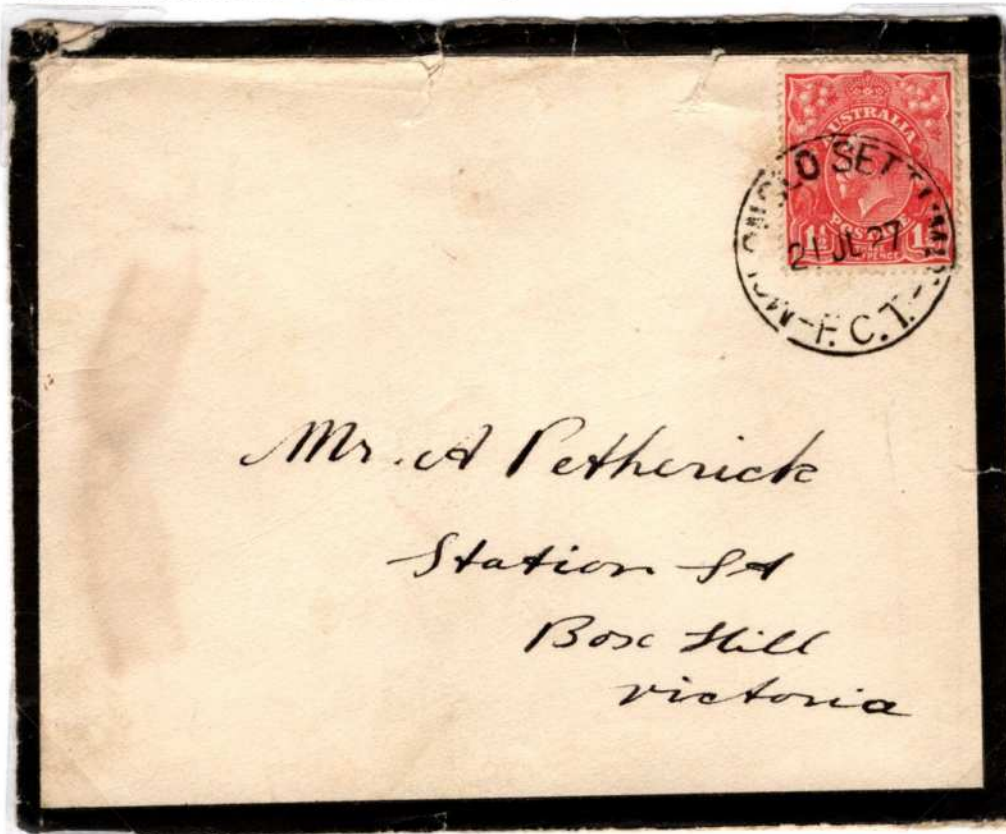 AUSTRALIA
POSTAGE
21 JL 27
F.C.T.
Mr. A Petherick
Station St
Box Hill
Victoria